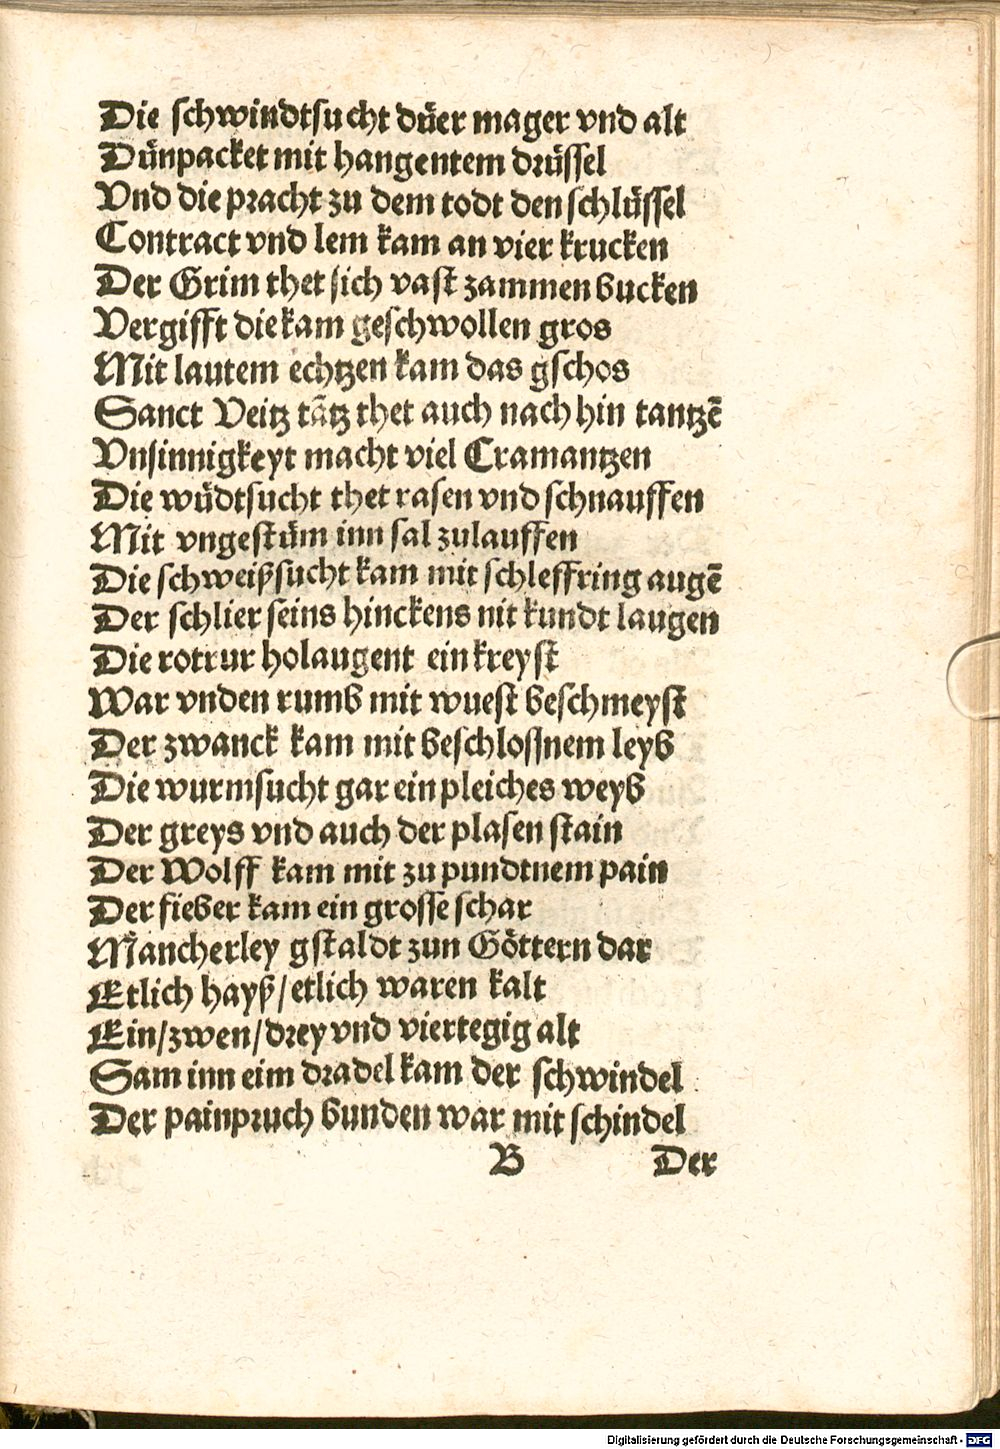 Die schwindtsucht düer mager vnd alt
Dünpacket mit hangentem drüssel
Vnd die pracht zu dem todt den schlüssel
Contract vnd lem kam an vier krucken
Der Grim thet sich vast zammen bucken
Vergifft die kam geschwollen gros
Mit lautem echtzen kam das gschos
Sanct Veitz tātz thet auch nach hin tantzē
Vnsinnigkeyt macht viel Cramantzen
Die wüdtsucht thet rasen vnd schnauffen
Mit vngestüm inn sal zulauffen
Die schweißsucht kam mit schleffring augē
Der schlier seins hinckens nit kundt laugen
Die rotrur holaugent ein kreyst
War vnden rumb mit wuest beschmeyst
Der zwanck kam mit beschlossnem leyb
Die wurmsucht gar ein pleiches weyb
Der greys vnd auch der plasen stain
Der Wolff kam mit zu pundtnem pain
Der fieber kam ein grosse schar
Mancherley gstaldt zun Göttern dar
Etlich hayß/etlich waren kalt
Ein/zwen/drey vnd viertegig alt
Sam inn eim dradel kam der schwindel
Der painpruch bunden war mit schindel
B Der
Digitalisierung gefördert durch die Deutsche Forschungsgemeinschaft - DFG